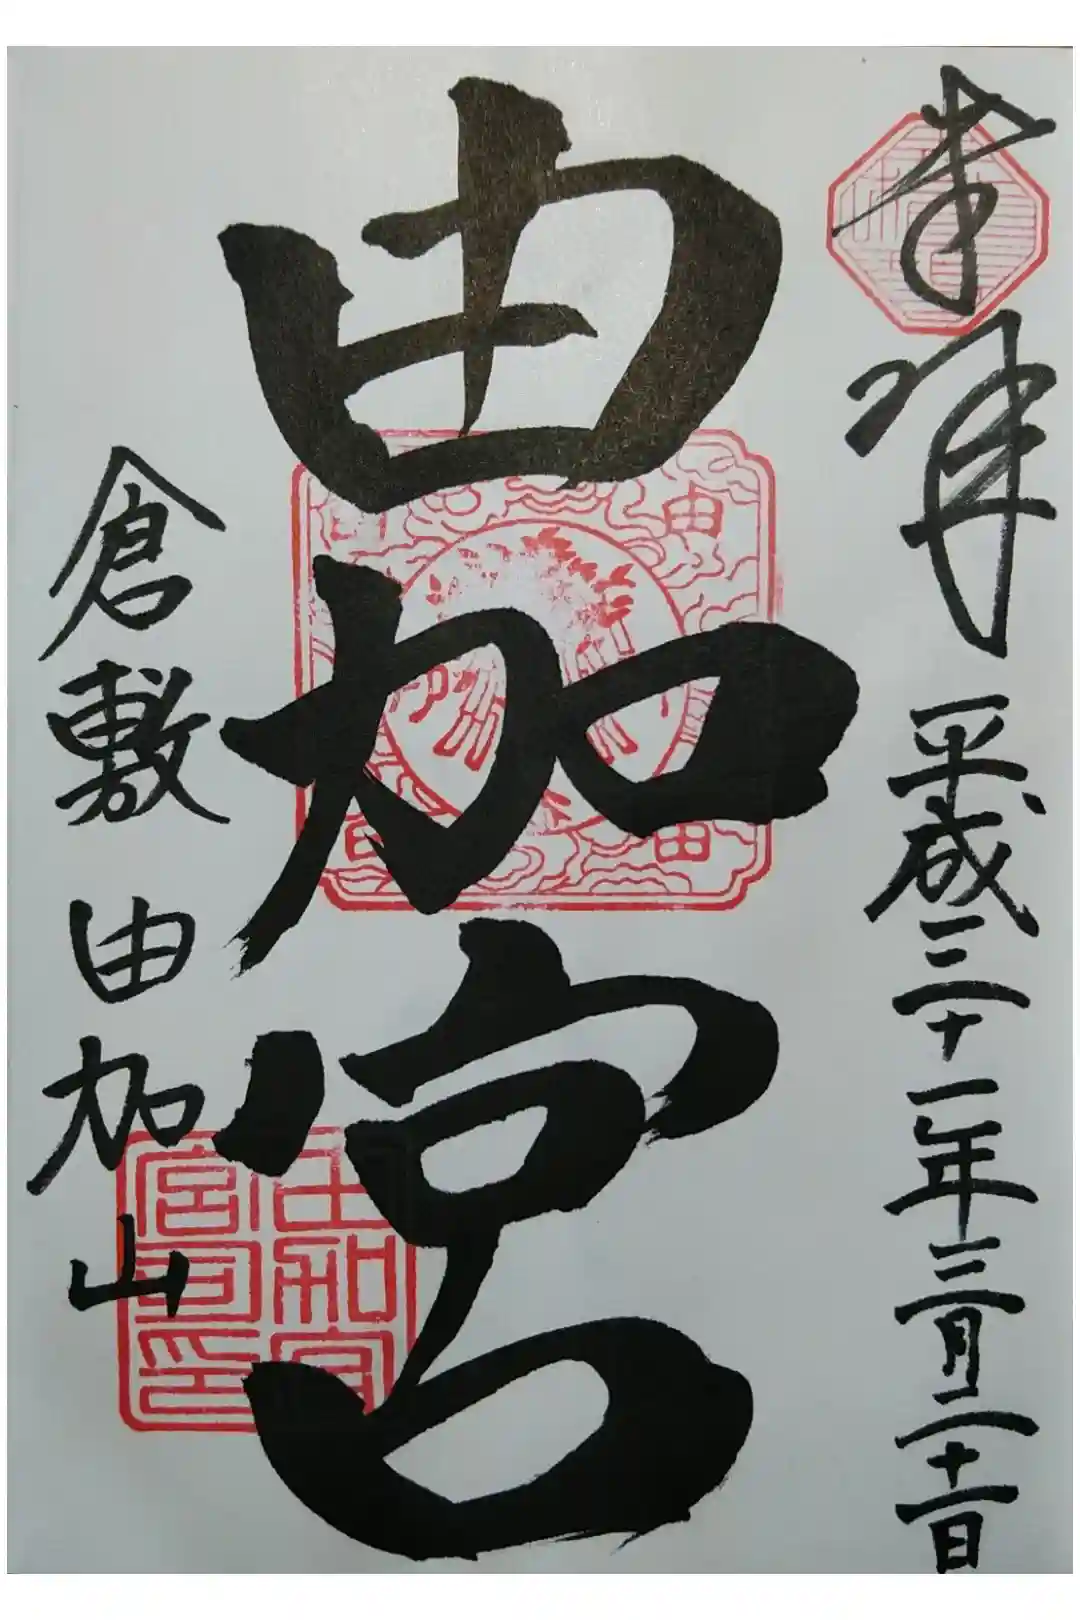 奉拝
平成三十一年三月二十一日
由加宮
倉敷由加山